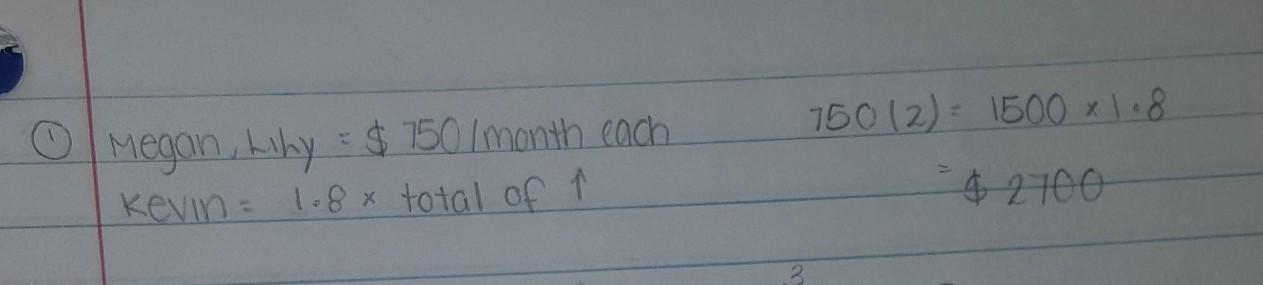 ① Megan, Lily = $ 750/month each
750(2) = 1500 × 1.8
Kevin = 1.8 × total of ↑
= $ 2700
3